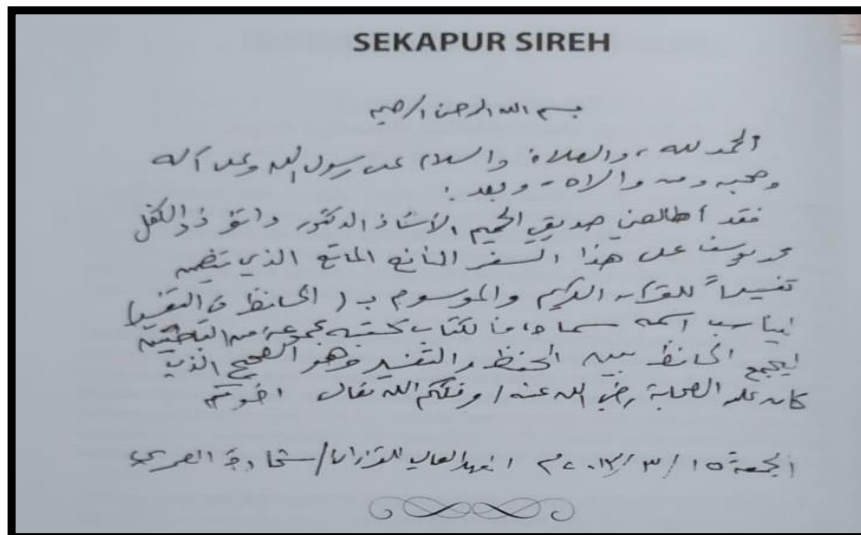 SEKAPUR SIREH
بسم الله الرحمن الرحيم
الحمد لله، والصلاة والسلام على رسول الله وعلى آله
وصحبه ومن والاه - وبعد:
فقد أطالعني صديقي الحميم الأستاذ الدكتور داتؤ ذو الكفل
محمد يوسف على هذا السفر النافع الماتع الذي يتضمن
تفسيراً للقرآن الكريم والموسوم بـ (الحافظ في التفسير)
ليناسب اسمه مسماه، فالكتاب كتبته مجموعة من الباحثين
ليجمع الحافظ بين الحفظ والتفسير وهو الصحيح الذي
كان عليه الصحابة رضي الله عنه / وفقكم الله تعالى أخوكم
الجمعة ١٥/٣/٢٠١٣م المعهد العالي للقرآن /